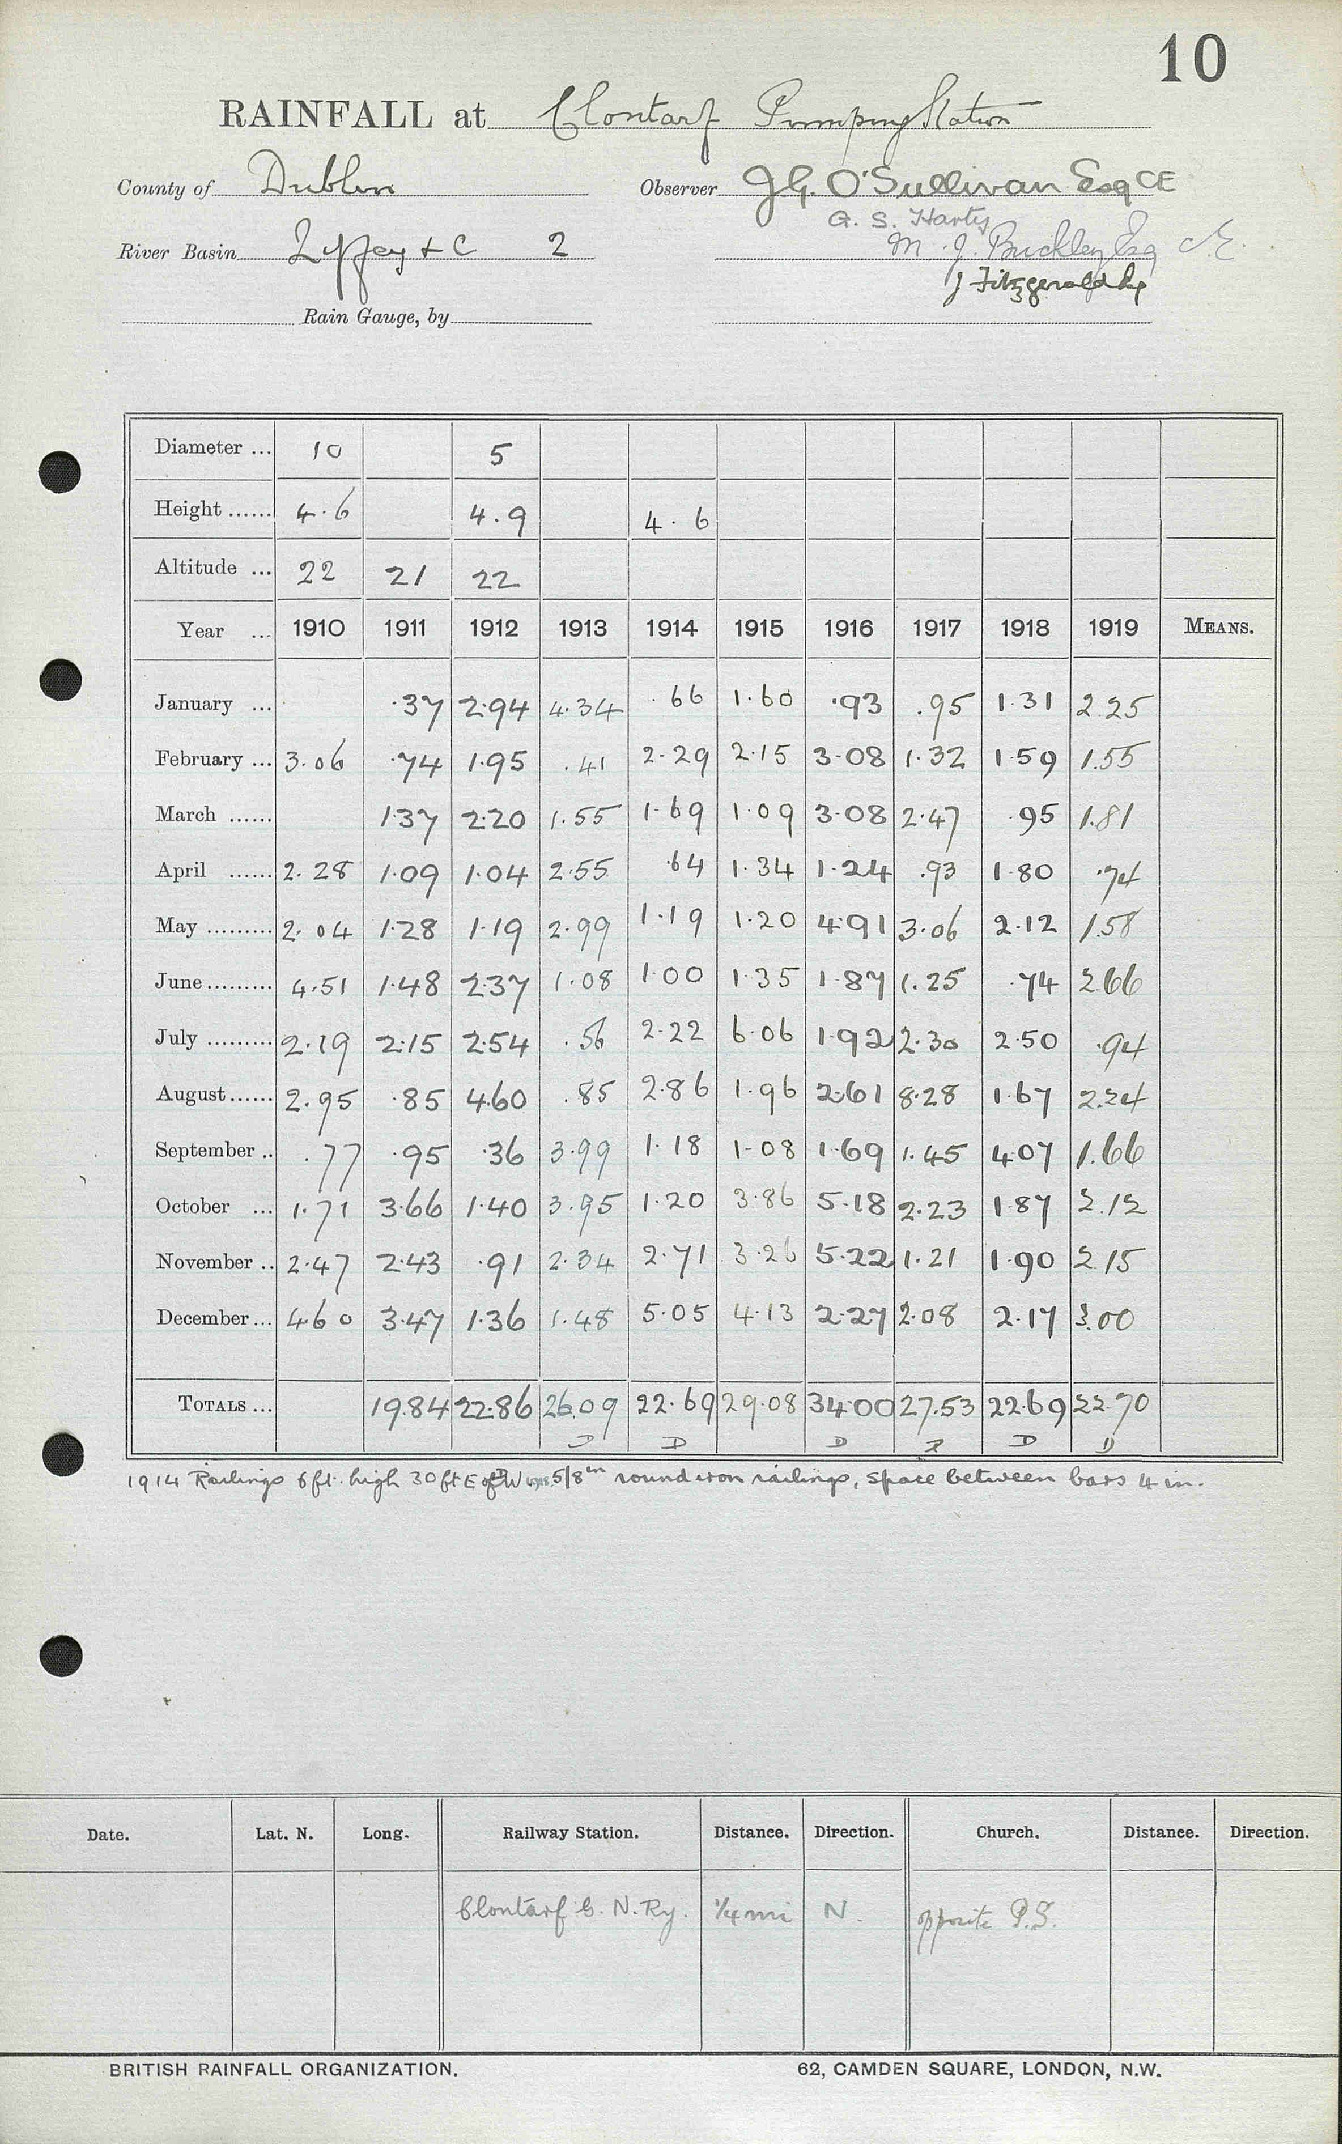 10
RAINFALL at Clontarf Pumping Station
County of Dublin Observer J G. O'Sullivan Esq CE
G. S. Harty
River Basin Liffey + C 2 M. J. Buckley Esq C.E.
J Fitzgerald Esq
Rain Gauge, by
Diameter ... 10 5
Height ...... 4.6 4.9 4.6
Altitude ... 22 21 22
Year ... 1910 1911 1912 1913 1914 1915 1916 1917 1918 1919 MEANS.
January ... .37 2.94 4.34 .66 1.60 .93 .95 1.31 2.25
February ... 3.06 .74 1.95 .41 2.29 2.15 3.08 1.32 1.59 1.55
March ...... 1.37 2.20 1.55 1.69 1.09 3.08 2.47 .95 1.81
April ...... 2.28 1.09 1.04 2.55 .64 1.34 1.24 .93 1.80 .74
May ......... 2.04 1.28 1.19 2.99 1.19 1.20 4.91 3.06 2.12 1.58
June ......... 4.51 1.48 2.37 1.08 1.00 1.35 1.87 1.25 .74 2.66
July ......... 2.19 2.15 2.54 .56 2.22 6.06 1.92 2.30 2.50 .94
August ...... 2.95 .85 4.60 .85 2.86 1.96 2.61 8.28 1.67 2.24
September .. .77 .95 .36 3.99 1.18 1.08 1.69 1.45 4.07 1.66
October ... 1.71 3.66 1.40 3.95 1.20 3.86 5.18 2.23 1.87 2.12
November .. 2.47 2.43 .91 2.34 2.71 3.26 5.22 1.21 1.90 2.15
December ... 4.60 3.47 1.36 1.48 5.05 4.13 2.27 2.08 2.17 3.00
TOTALS ... 19.84 22.86 26.09 22.69 29.08 34.00 27.53 22.69 22.70
D D D D D D
1914 Railings 6 ft. high 30 ft E of W 5/8 in round iron railings, space between bars 4 in.
Date. Lat. N. Long. Railway Station. Distance. Direction. Church. Distance. Direction.
Clontarf G. N. Ry. 1/4 mi N. opposite P.S.
BRITISH RAINFALL ORGANIZATION. 62, CAMDEN SQUARE, LONDON, N.W.